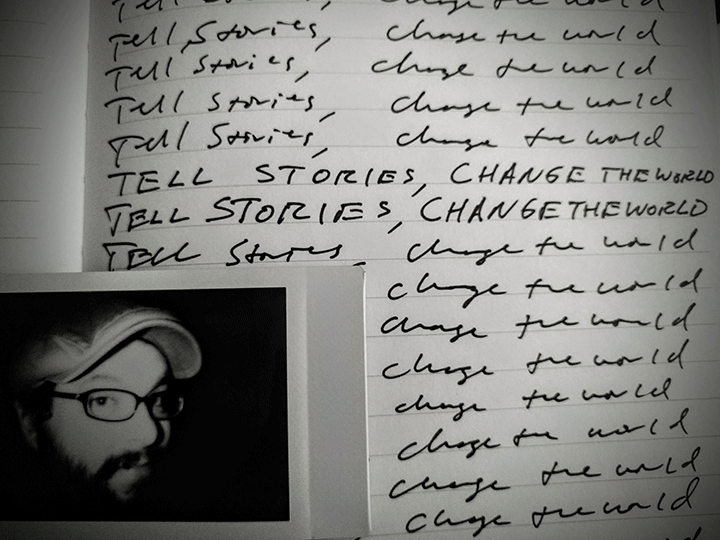 Tell Stories, change the world
Tell Stories, change the world
Tell Stories, change the world
Tell Stories, change the world
Tell Stories, change the world
TELL STORIES, CHANGE THE WORLD
TELL STORIES, CHANGE THE WORLD
TELL Stories, change the world
change the world
change the world
change the world
change the world
change the world
change the world
change the world